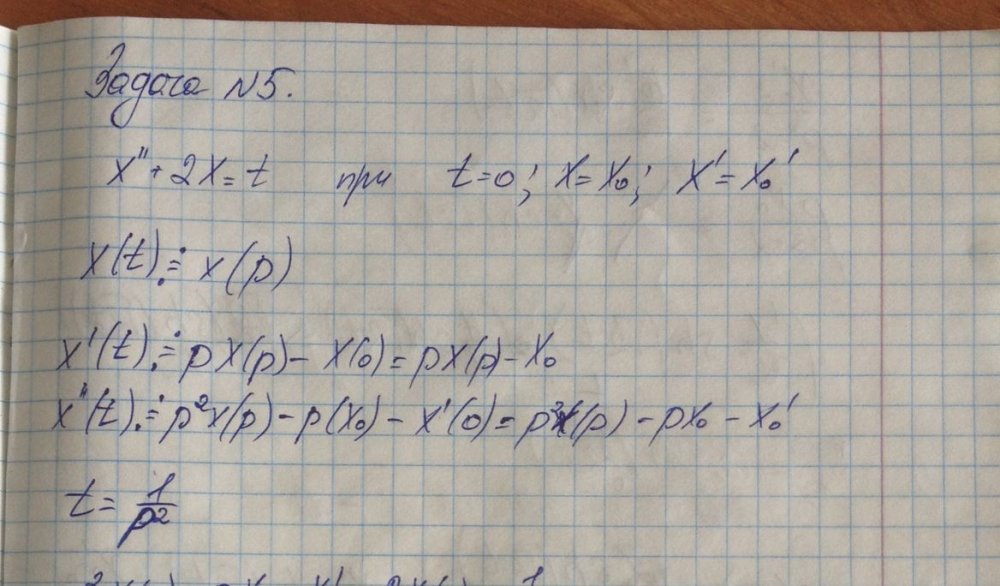 Задача N5.
x'' + 2x = t при t=0; x = x₀; x' = x₀'
x(t) ≓ x(p)
x'(t) ≓ px(p) - x(0) = px(p) - x₀
x''(t) ≓ p²x(p) - p(x₀) - x'(0) = p²x(p) - px₀ - x₀'
t = 1/p²